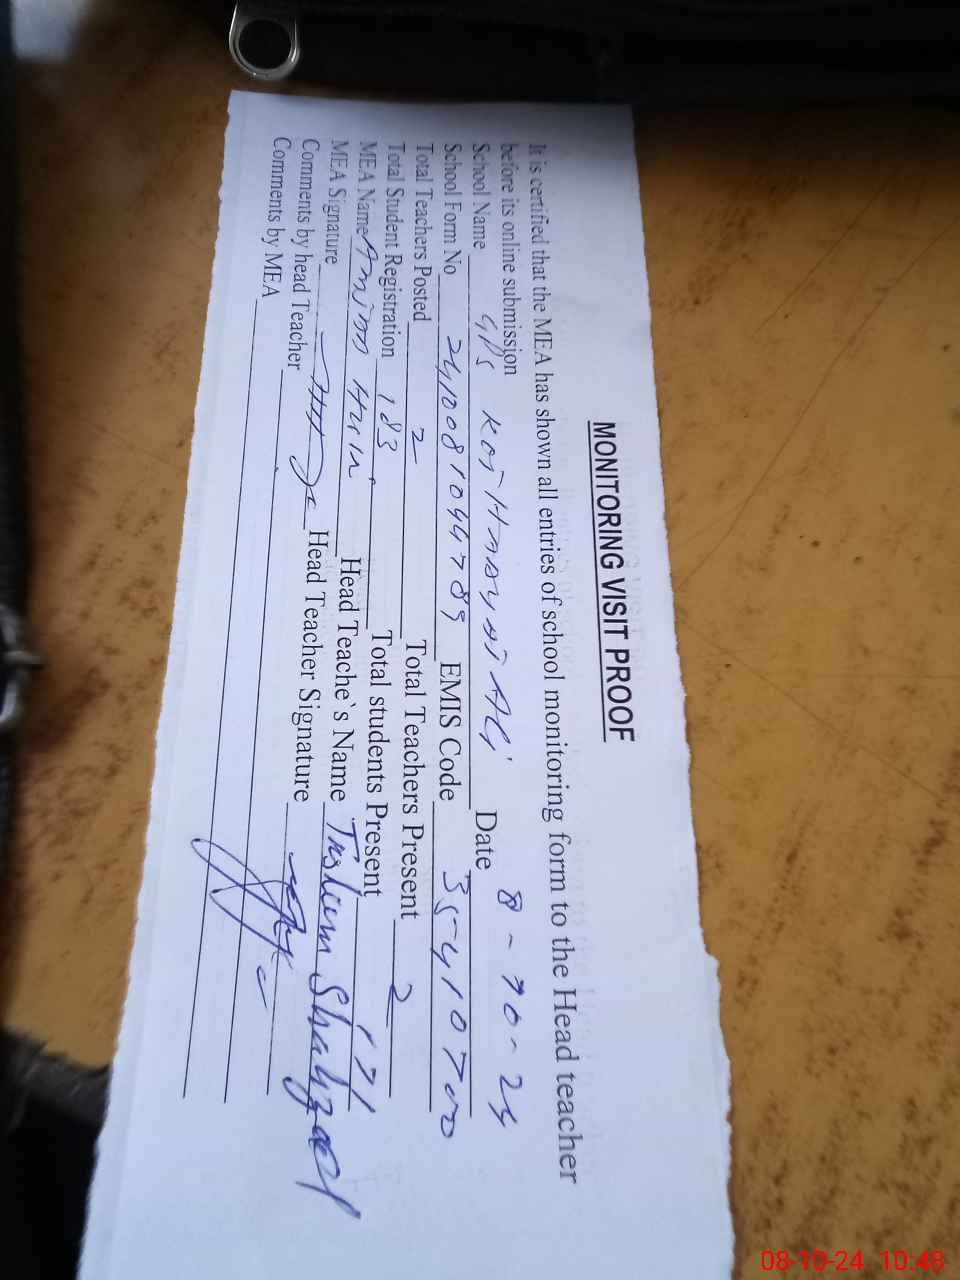 MONITORING VISIT PROOF
It is certified that the MEA has shown all entries of school monitoring form to the Head teacher
before its online submission
School Name GPS Kot Hadayat Ali Date 8-10-24
School Form No 2410081044789 EMIS Code 35410700
Total Teachers Posted 2 Total Teachers Present 2
Total Student Registration 183 Total students Present 171
MEA Name Head Teache`s Name Tasleem Shahzad
MEA Signature Head Teacher Signature
Comments by head Teacher
Comments by MEA
08-10-24 10:48